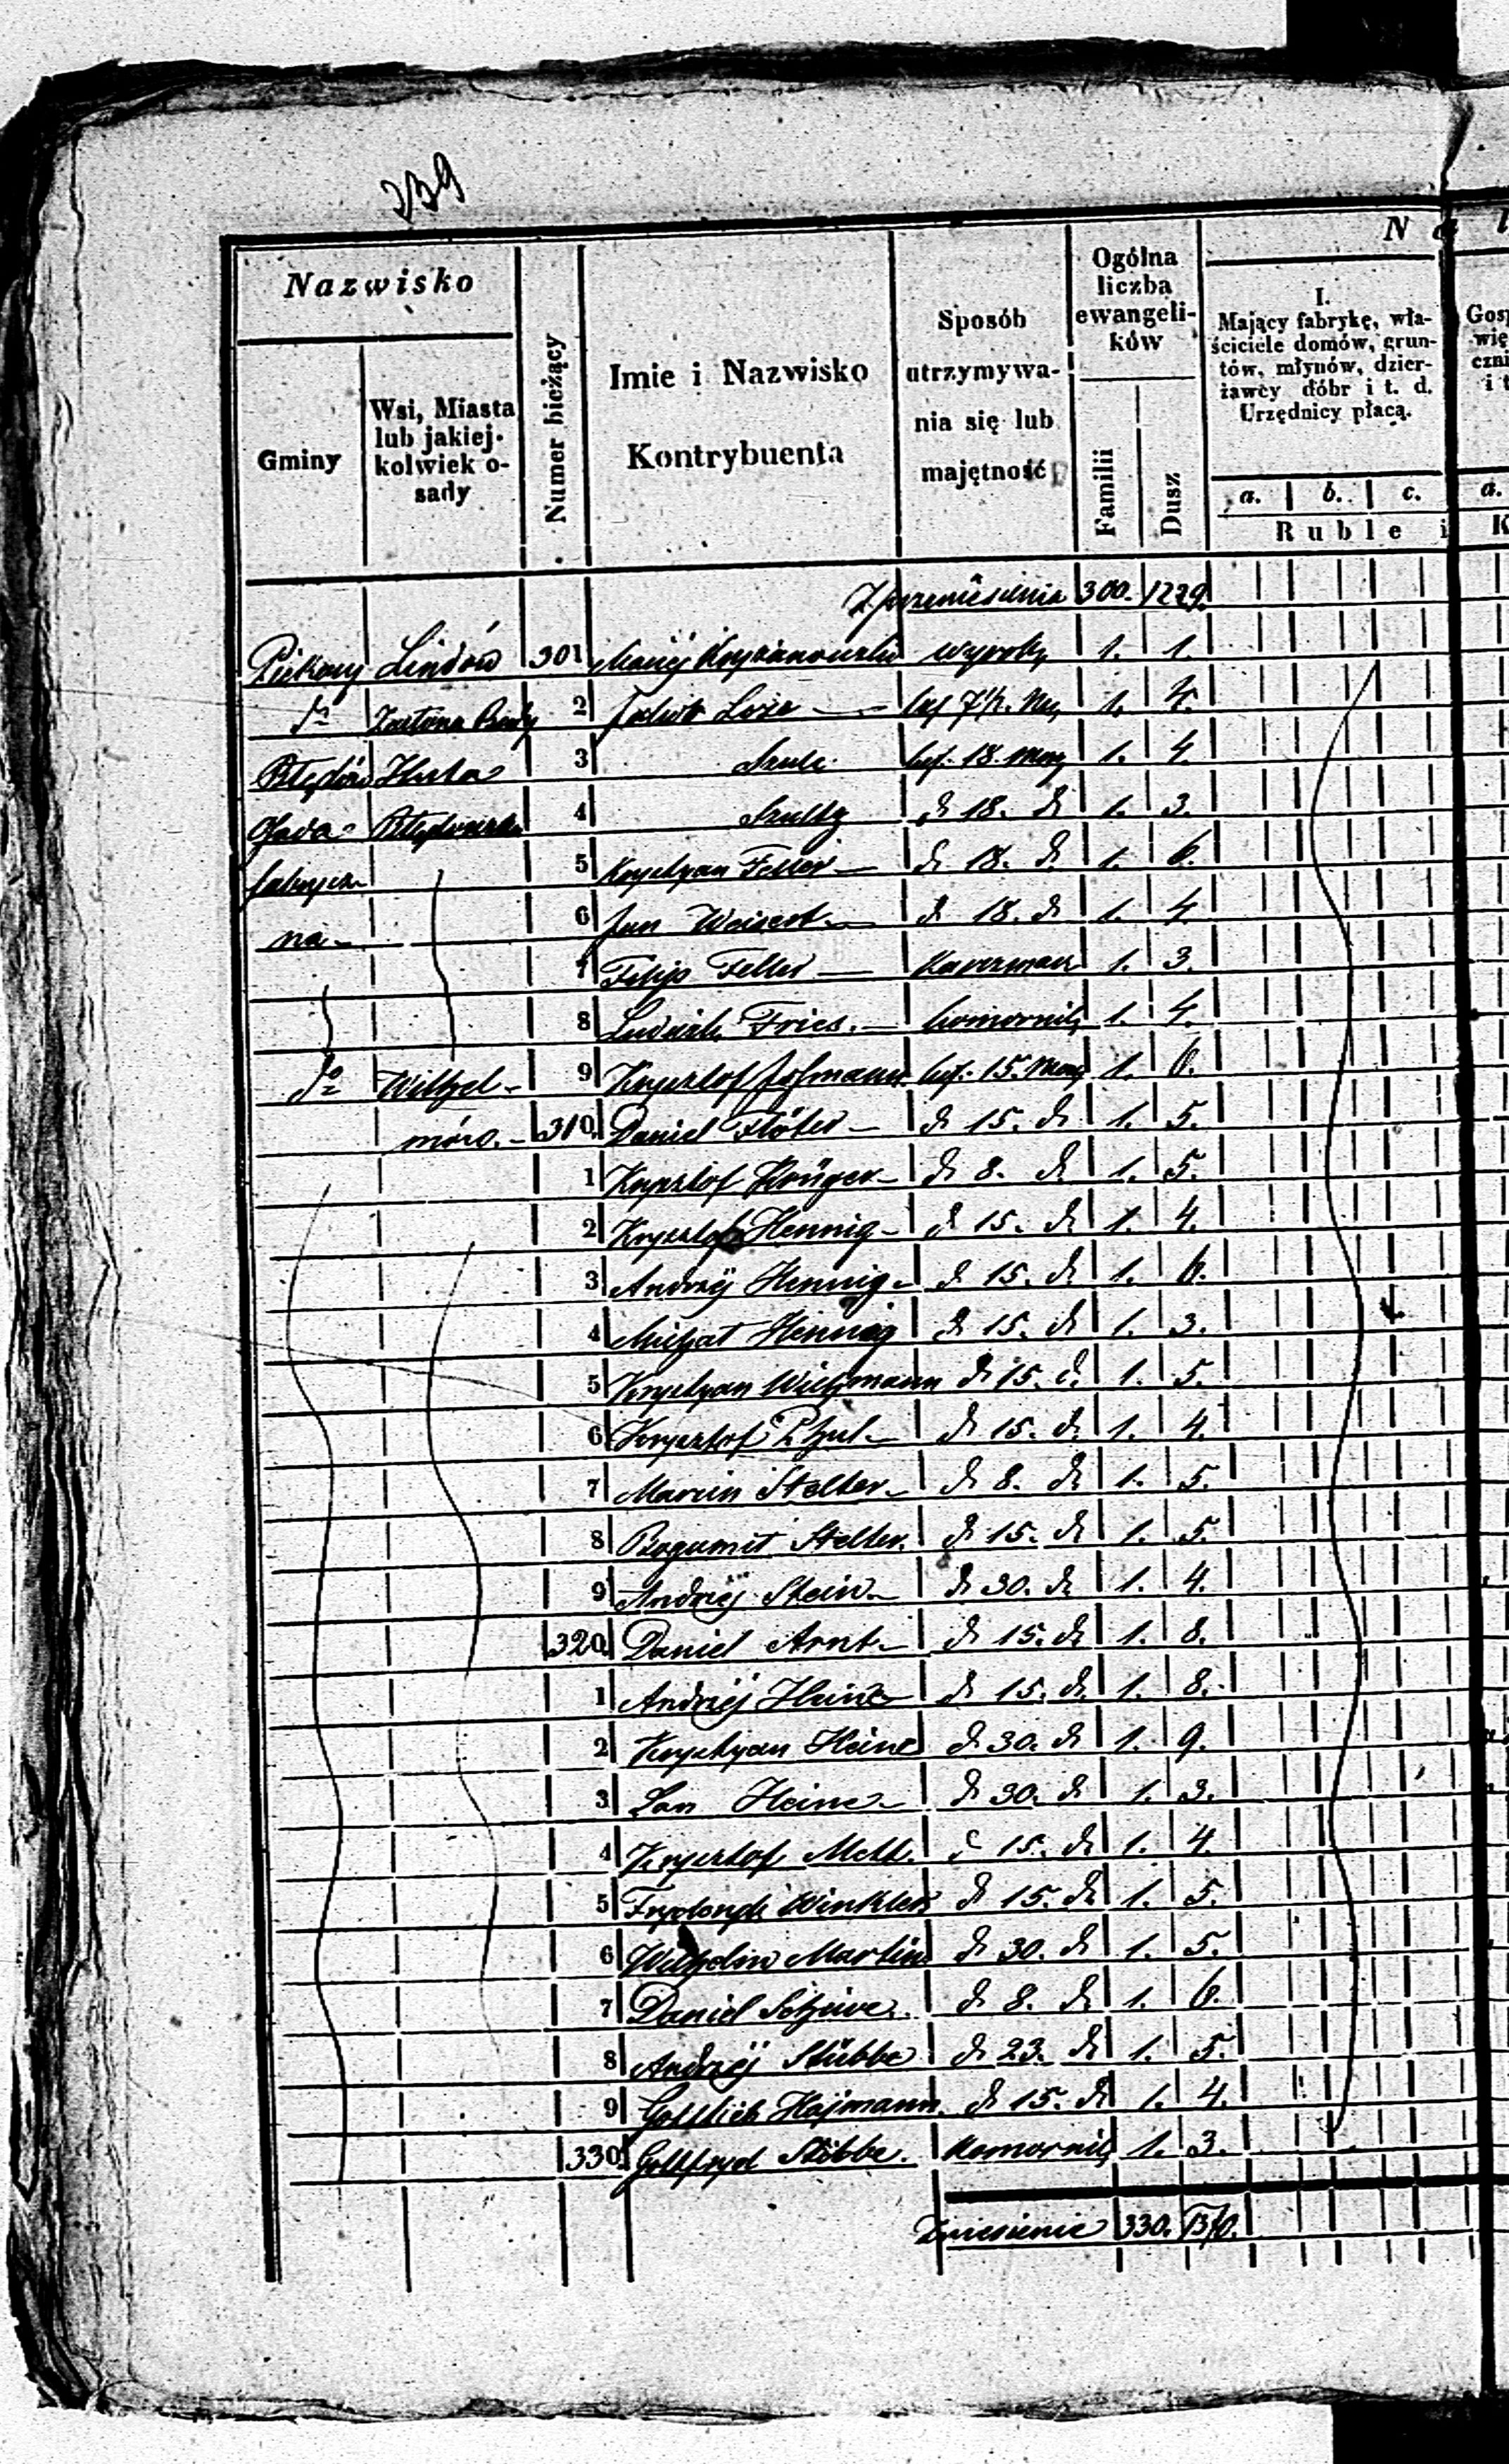 239
Nazwisko
Gminy
Wsi, Miasta lub jakiej-kolwiek o-sady
Numer bieżący
Imie i Nazwisko
Kontrybuenta
Sposób utrzymywa-nia się lub majętność
Ogólna liczba ewangeli-ków
Familii
Dusz
I.
Mający fabrykę, wła-
ściciele domów, grun-
tów, młynów, dzier-
żawcy dóbr i t. d.
Urzędnicy płacą.
a. b. c.
Ruble i
Z przeniesienia 300. 1229.
Piekary Lindów 301 Maciej wyrob. 1. 1.
do 2 Jakub 1. 4.
Błędów Huta 3 Szulc 18. morg 1. 4.
Osada Błędowska 4 Szultz do 18. do 1. 3.
fabrycz- 5 Krystyan Feller do 18. do 1. 6.
na 6 Jan Weisert do 18. do 1. 4.
7 Filip Feller 1. 3.
8 Ludwik Fries. komornik 1. 4.
do Wilhel- 9 Krysztof Hofmann 15. morg 1. 6.
mów. 310. Daniel Flöter do 15. do 1. 5.
1 Krysztof Krüger do 8. do 1. 5.
2 Krysztof Hennig do 15. do 1. 4.
3 Andrzéj Hennig do 15. do 1. 6.
4 Michał Hennig do 15. do 1. 3.
5 Krystyan Wichmann do 15. do 1. 5.
6 Krysztof do 15. do 1. 4.
7 Marcin Stelter do 8. do 1. 5.
8 Bogumił Stelter. do 15. do 1. 5.
9 Andrzéj Stein do 30. do 1. 4.
320. Daniel Arnt do 15. do 1. 8.
1 Andrzéj Heine do 15. do 1. 8.
2 Krystyan Heine do 30. do 1. 9.
3 Jan Heine do 30. do 1. 3.
4 Krysztof do 15. do 1. 4.
5 Fryderyk Winkler do 15. do 1. 5.
6 Wilhelm Martin do 30. do 1. 5.
7 Daniel do 8. do 1. 6.
8 Andrzéj Stübbe do 23. do 1. 5.
9 Gottlieb Hajmann. do 15. do 1. 4.
330. Gottfryd Stöbbe. Komornik 1. 3.
Zniesienie 330. 1370.